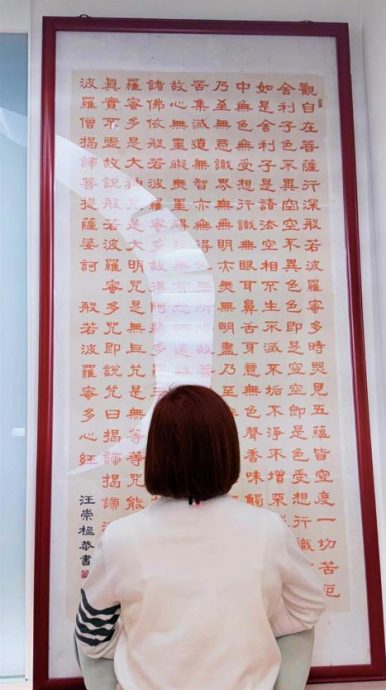 觀自在菩薩行深般若波羅蜜多時照見五蘊皆空度一切苦厄
舍利子色不異空空不異色色即是空空即是色受想行識
如是舍利子是諸法空相不生不滅不垢不淨不增不
中無色無受想行識無眼耳鼻舌身意無色聲香味觸
乃至無意識界無無明亦無無明盡乃至
苦集滅道無智亦無得以無所得故菩
故心無罣礙無罣礙故無有恐怖遠離
諸佛依般若波羅蜜多故得阿耨多羅
羅蜜多是大神咒是大明咒是無上咒是無等等咒能
真實不虛故說般若波羅蜜多咒即說咒曰揭諦揭諦
波羅僧揭諦菩提薩婆訶 般若波羅蜜多心經
汪崇楹恭書